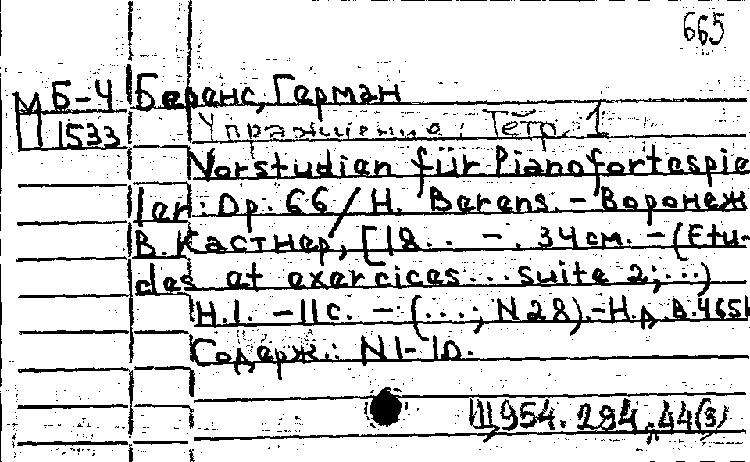 665
М Б-4 Беранс, Герман
1533 Упражнения. Тетр. 1
Vorstudien für Pianofortespie
ler: Op. 66 / H. Berens. - Воронеж
В. Кастнер, [18.. - . 34 см. - (Etu-
des et exercices... suite 2; ...)
H.1. - 11 с. - (...; N 28). - Н.д. В.465
Содерж.: N1-10.
Ш 954. 284. 44(3)